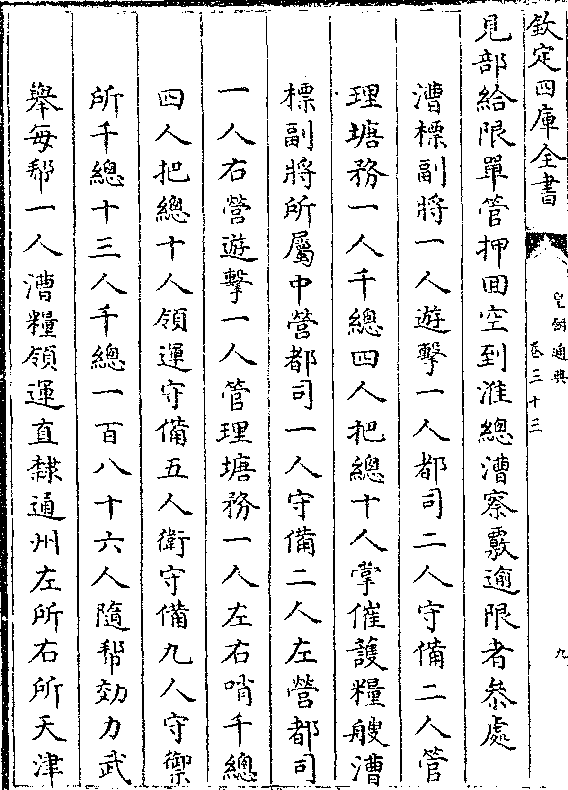 欽定四庫全書
皇朝通典
卷三十三
九
見部給限單管押回空到淮總漕察覈逾限者叅處
漕標副將一人遊擊一人都司二人守備二人管
理塘務一人千總四人把總十人掌催護糧艘漕
標副將所屬中營都司一人守備二人左營都司
一人右營遊擊一人管理塘務一人左右哨千總
四人把總十人領運守備五人衛守備九人守禦
所千總十三人千總一百八十六人隨幫効力武
舉每幫一人漕糧領運直隸通州左所右所天津